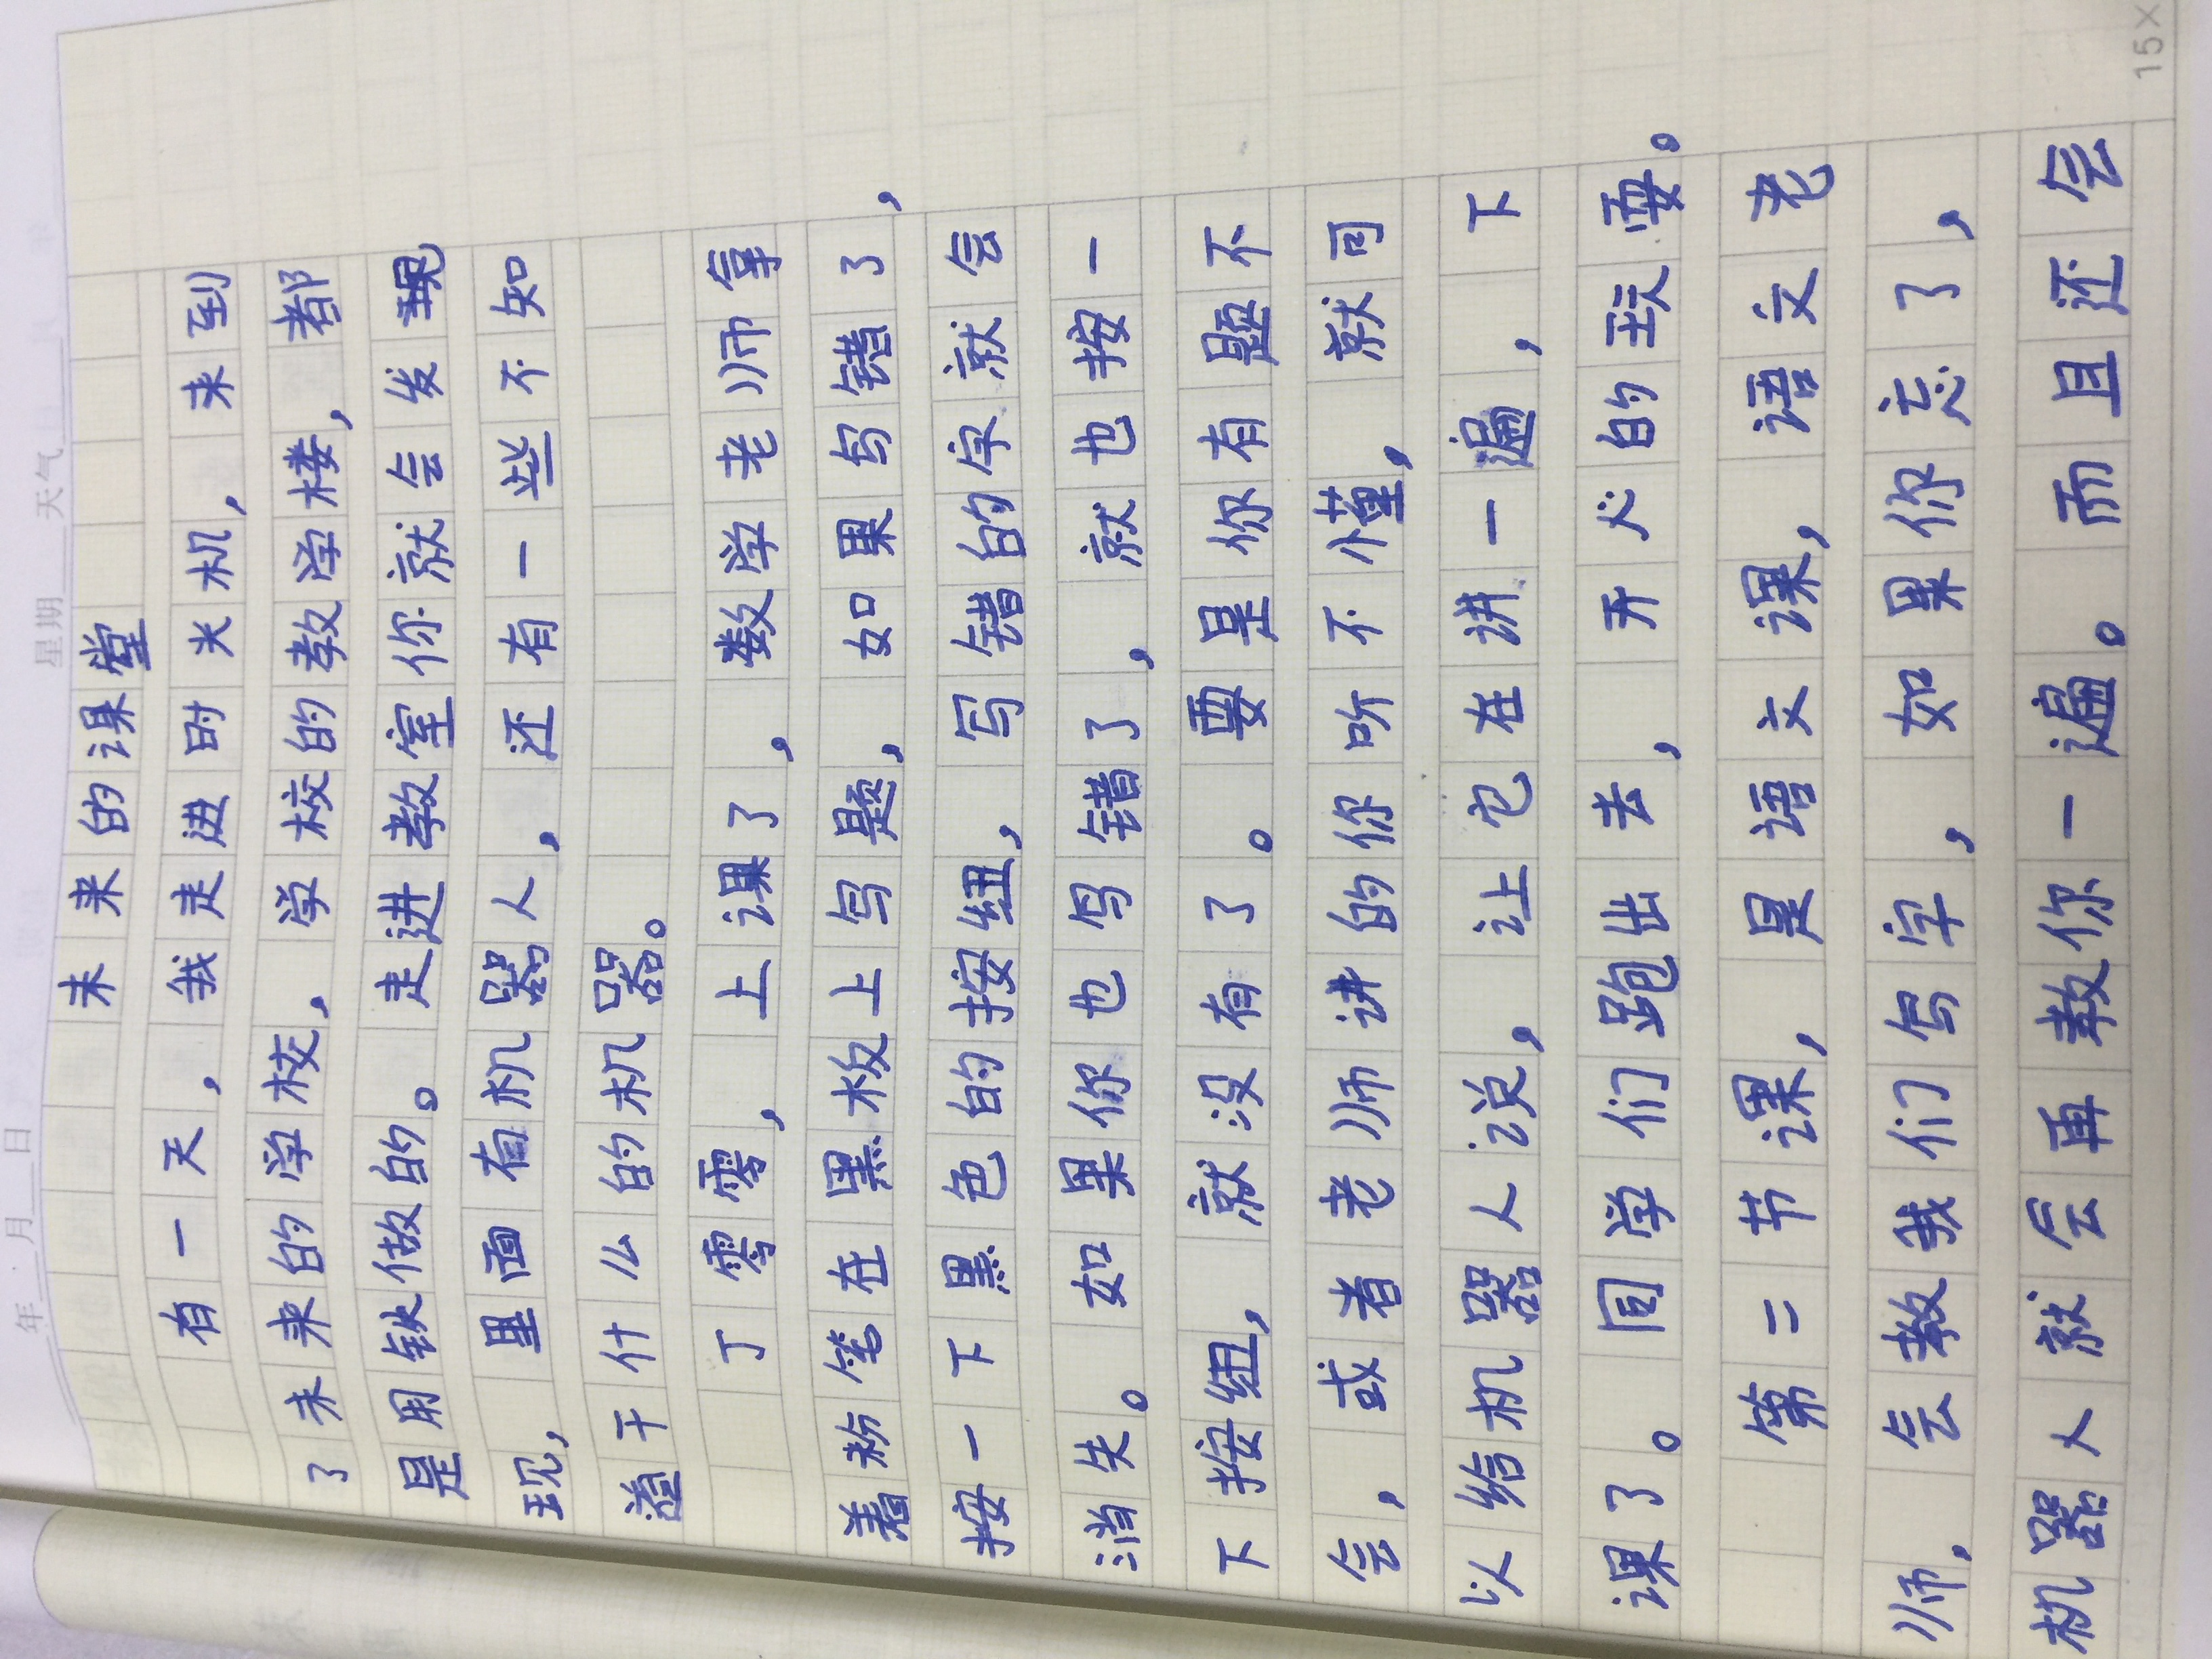 年 月 日 星期 天气
未来的课堂
有一天，我走进时光机，来到
了未来的学校，学校的教学楼，都
是用铁做的。走进教室你就会发现
现，里面有机器人，还有一些不知
道干什么的机器。
丁零零，上课了，数学老师拿
着粉笔在黑板上写题，如果写错了，
按一下黑色的按纽，写错的字就会
消失。如果你也写错了，就也按一
下按纽，就没有了。要是你有题不
会，或者老师讲的你听不懂，就可
以给机器人说，让它在讲一遍，下
课了。同学们跑出去，开心的玩耍。
第二节课，是语文课，语文老
师，会教我们写字，如果你忘了，
机器人就会再教你一遍。而且还会
15×